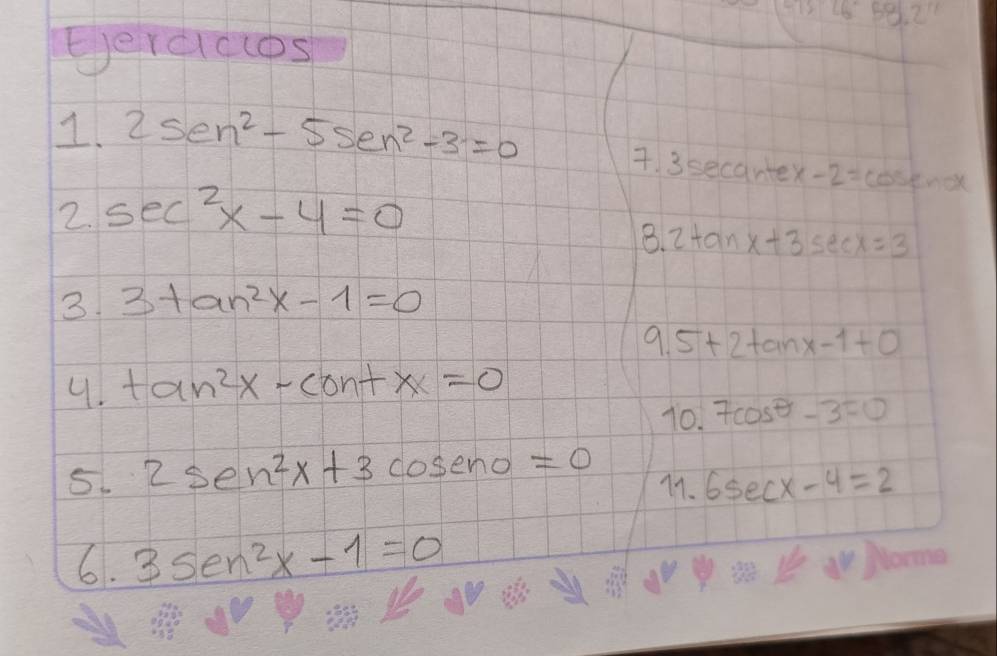 Ejercicios
1. 2sen² - 5sen² - 3 = 0
2. sec²x - 4 = 0
3. 3tan²x - 1 = 0
4. tan²x - contxx = 0
5. 2sen²x + 3coseno = 0
6. 3sen²x - 1 = 0
7. 3secantex - 2 = cosenox
8. 2tanx + 3secx = 3
9. 5 + 2tanx - 1 + 0
10. 7cosθ - 3 = 0
11. 6secx - 4 = 2
Norma